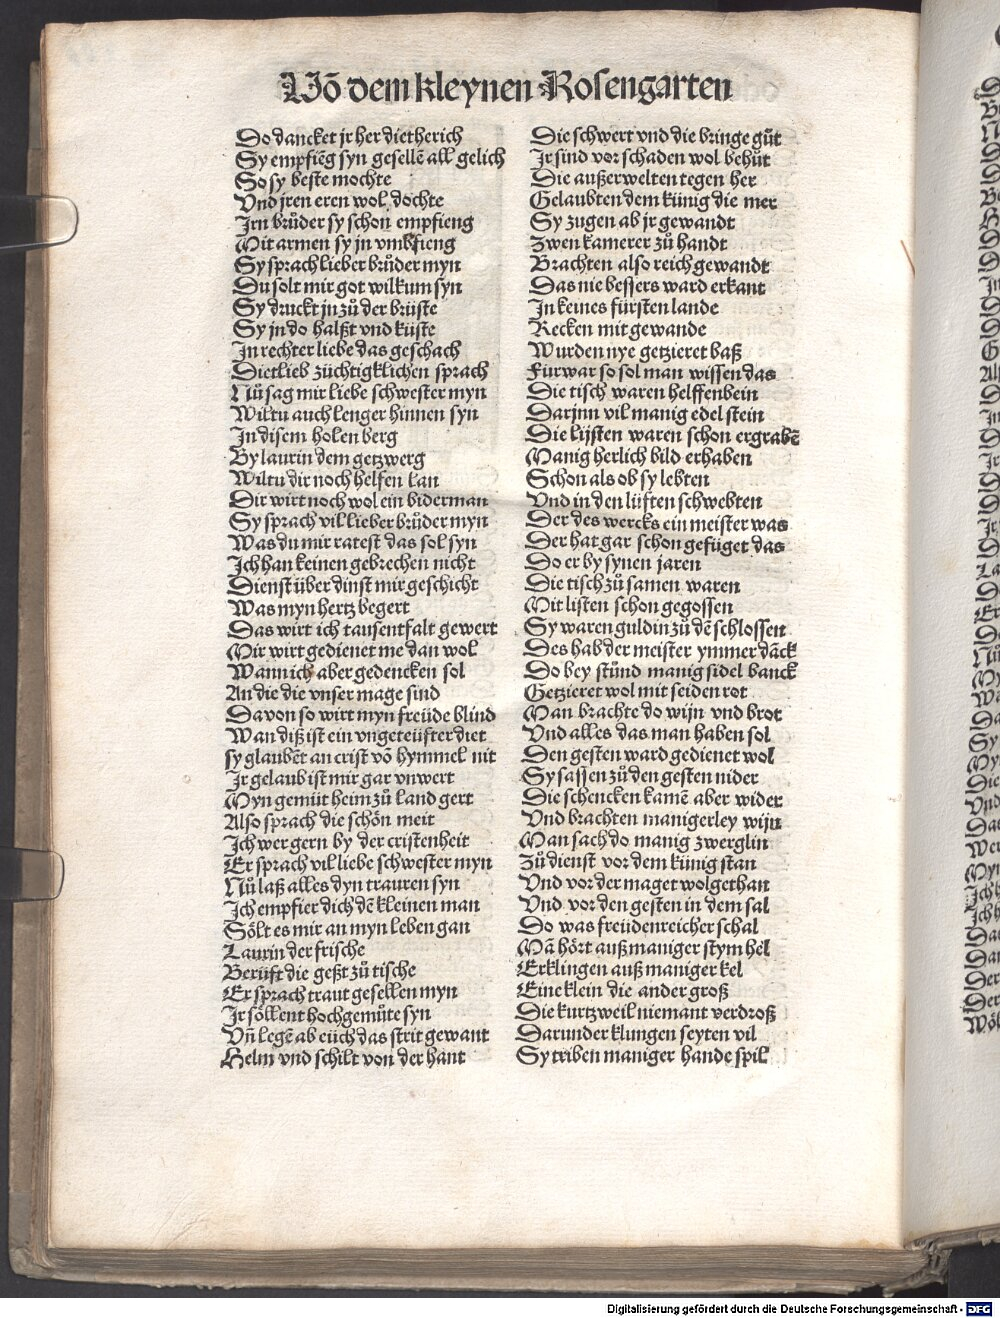 Võ dem kleynen Rosengarten
Do dancket jr her dietherich
Sy empfieg syn gesellē all gelich
So sy beste mochte
Vnd jren eren wol dochte
Irn brůder sy schon empfieng
Mit armen sy jn vmbfieng
Sy sprach lieber brůder myn
Du solt mir got wilkum syn
Sy druckt jn zů der brüste
Sy jn do halßt vnd küste
In rechter liebe das geschach
Dietlieb züchtigklichen sprach
Nů sag mir liebe schwester myn
Wiltu auch lenger hinnen syn
In disem holen berg
By laurin dem getzwerg
Wiltu dir noch helfen lan
Dir wirt noch wol ein biderman
Sy sprach vil lieber brůder myn
Was du mir ratest das sol syn
Ich han keinen gebrechen nicht
Dienst über dinst mir geschicht
Was myn hertz begert
Das wirt ich tausentfalt gewert
Mir wirt gedienet me dan wol
Wann ich aber gedencken sol
An die die vnser mage sind
Da von so wirt myn freüde blind
Wan diß ist ein vngeteüfter diet
sy glaubēt an crist võ hymmel nit
Ir gelaub ist mir gar vnwert
Myn gemüt heim zů land gert
Also sprach die schön meit
Ich wer gern by der cristenheit
Er sprach vil liebe schwester myn
Nů laß alles dyn trauren syn
Ich empfier dich dē kleinen man
Sölt es mir an myn leben gan
Laurin der frische
Berüft die geßt zů tische
Er sprach traut gesellen myn
Ir söllent hochgemüte syn
Vñ legē ab eüch das strit gewant
Helm vnd schilt von der hant
Die schwert vnd die bringe gůt
Ir sind vor schaden wol behůt
Die außerwelten tegen her
Gelaubten dem künig die mer
Sy zugen ab jr gewandt
Zwen kamerer zů handt
Brachten also reich gewandt
Das nie bessers ward erkant
In keines fürsten lande
Recken mit gewande
Wurden nye getzieret baß
Fürwar so sol man wissen das
Die tisch waren helffenbein
Darjnn vil manig edel stein
Die lijsten waren schon ergrabē
Manig herlich bild erhaben
Schon als ob sy lebten
Vnd in den lüften schwebten
Der des wercks ein meister was
Der hat gar schon gefüget das
Do er by synen jaren
Die tisch zů samen waren
Mit listen schon gegossen
Sy waren guldin zů dē schlossen
Des hab der meister ymmer dāck
Do bey stůnd manig sidel banck
Getzieret wol mit seiden rot
Man brachte do wijn vnd brot
Vnd alles das man haben sol
Den gesten ward gedienet wol
Sy sassen zů den gesten nider
Die schencken kamē aber wider
Vnd brachten manigerley wijn
Man sach do manig zwerglin
Zů dienst vor dem künig stan
Vnd vor der maget wolgethan
Vnd vor den gesten in dem sal
Do was freüdenreicher schal
Mā hört auß maniger stym hel
Erklingen auß maniger kel
Eine klein die ander groß
Die kurtzweil niemant verdroß
Darunder klungen seyten vil
Sy triben maniger hande spil
Digitalisierung gefördert durch die Deutsche Forschungsgemeinschaft - DFG